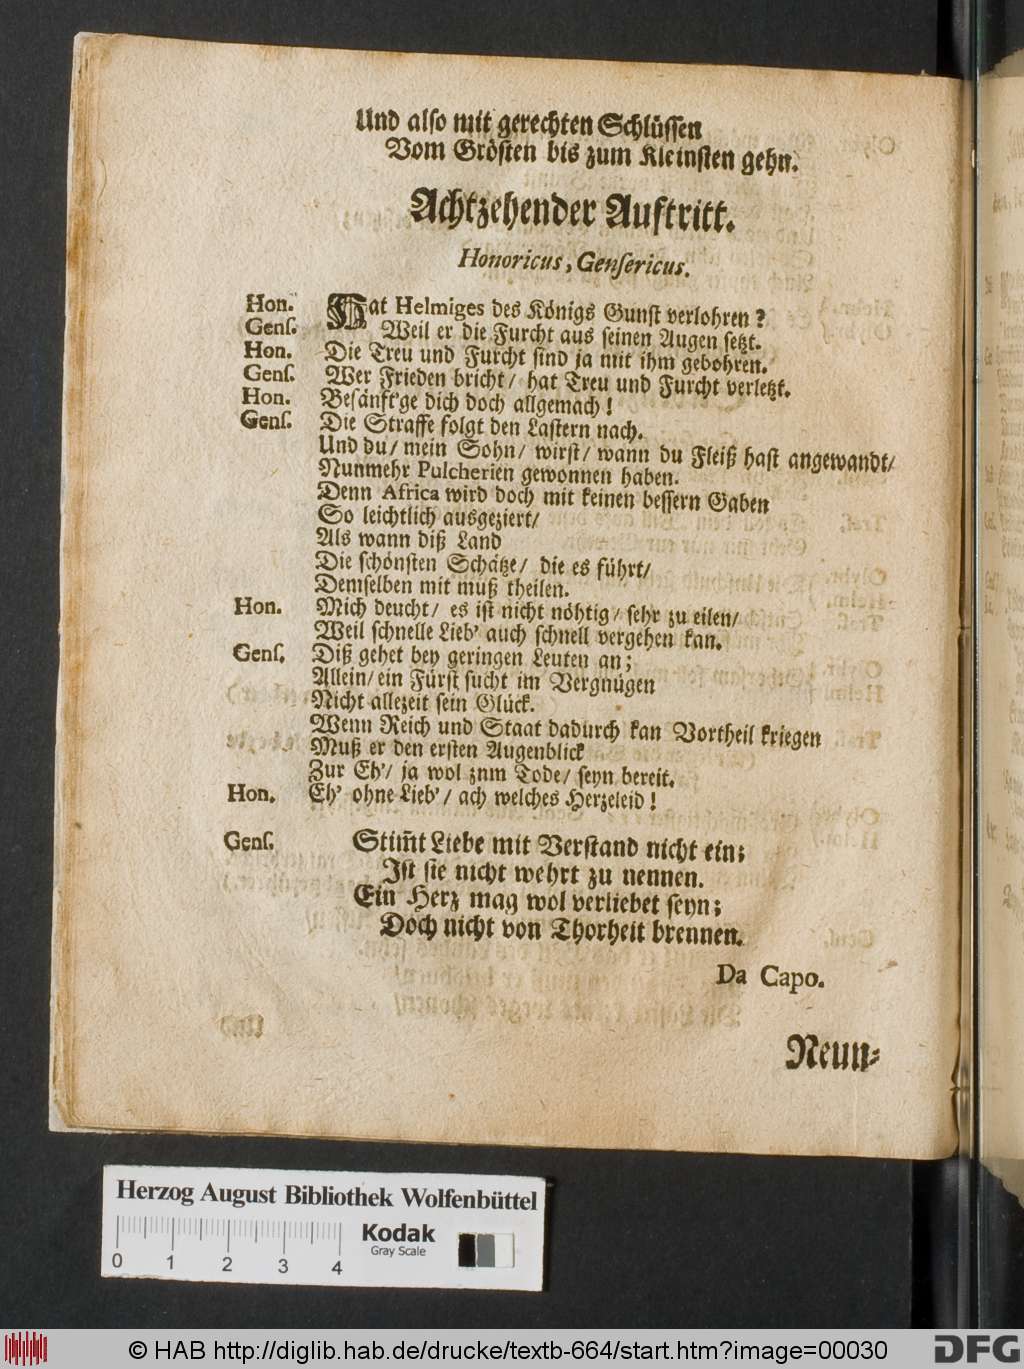 Und alſo mit gerechten Schlüſſen
Vom Gröſten bis zum Kleinſten gehn.
Achtzehender Auftritt.
Honoricus, Genſericus.
Hon. Hat Helmiges des Königs Gunſt verlohren?
Genſ. Weil er die Furcht aus ſeinen Augen ſetzt.
Hon. Die Treu und Furcht ſind ja mit ihm gebohren.
Genſ. Wer Frieden bricht/ hat Treu und Furcht verletzt.
Hon. Beſänft'ge dich doch allgemach!
Genſ. Die Straffe folgt den Laſtern nach.
Und du/ mein Sohn/ wirſt/ wann du Fleiß haſt angewandt/
Nunmehr Pulcherien gewonnen haben.
Denn Africa wird doch mit keinen beſſern Gaben
So leichtlich ausgeziert/
Als wann diß Land
Die ſchönſten Schätze/ die es führt/
Demſelben mit muß theilen.
Hon. Mich deucht/ es iſt nicht nöhtig/ ſehr zu eilen/
Weil ſchnelle Lieb' auch ſchnell vergehen kan.
Genſ. Diß gehet bey geringen Leuten an;
Allein/ ein Fürſt ſucht im Vergnügen
Nicht allezeit ſein Glück.
Wenn Reich und Staat dadurch kan Vortheil kriegen
Muß er den erſten Augenblick
Zur Eh'/ ja wol znm Tode/ ſeyn bereit.
Hon. Eh' ohne Lieb'/ ach welches Herzeleid!
Genſ. Stim̃t Liebe mit Verſtand nicht ein;
Iſt ſie nicht wehrt zu nennen.
Ein Herz mag wol verliebet ſeyn;
Doch nicht von Thorheit brennen.
Da Capo.
Neun-
Herzog August Bibliothek Wolfenbüttel
Kodak
Gray Scale
0 1 2 3 4
© HAB http://diglib.hab.de/drucke/textb-664/start.htm?image=00030
DFG